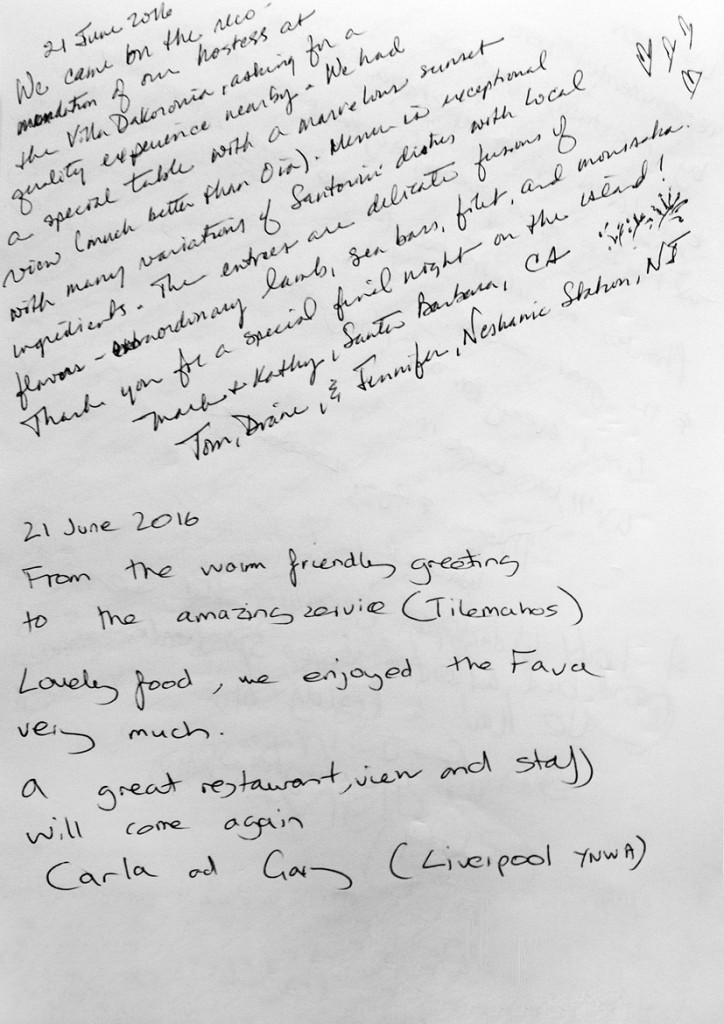 21 June 2016
We came on the reco-
mendation of our hostess at
the Villa Dakoronia, asking for a
quality experience nearby. We had
a special table with a marvelous sunset
view (much better than Oia). Menu is exceptional
with many variations of Santorini dishes with local
ingredients. The entrees are delicate fusions of
flavors - extraordinary lamb, sea bass, filet, and moussaka.
Thank you for a special final night on the island!
Mark + Kathy, Santa Barbara, CA
Tom, Diane, & Jennifer, Neshanic Station, NJ
21 June 2016
From the warm friendly greeting
to the amazing servie (Tilemahos)
Lovely food, we enjoyed the Fava
very much.
a great restaurant, view and staff
will come again
Carla ad Gary (Liverpool YNWA)